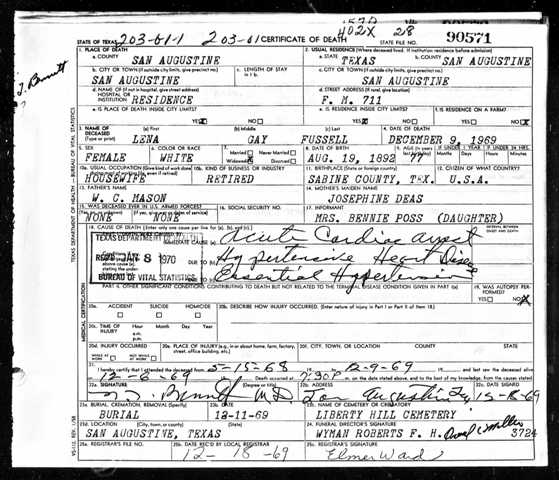 402X 28
STATE OF TEXAS 203-01-1 203-01 CERTIFICATE OF DEATH STATE FILE NO. 90571
1. PLACE OF DEATH 2. USUAL RESIDENCE (Where deceased lived. If institution: residence before admission)
a. COUNTY SAN AUGUSTINE a. STATE TEXAS b. COUNTY SAN AUGUSTINE
b. CITY OR TOWN (If outside city limits, give precinct no.) c. LENGTH OF STAY in 1 b. c. CITY OR TOWN (If outside city limits, give precinct no.)
SAN AUGUSTINE SAN AUGUSTINE
d. NAME OF (If not in hospital, give street address) HOSPITAL OR INSTITUTION d. STREET ADDRESS (If rural, give location)
RESIDENCE F. M. 711
e. IS PLACE OF DEATH INSIDE CITY LIMITS? e. IS RESIDENCE INSIDE CITY LIMITS? f. IS RESIDENCE ON A FARM?
YES NO YES NO YES NO
3. NAME OF DECEASED (Type or print) (a) First (b) Middle (c) Last 4. DATE OF DEATH
LENA GAY FUSSELL DECEMBER 9, 1969
5. SEX 6. COLOR OR RACE 7. Married Never Married Widowed Divorced 8. DATE OF BIRTH 9. AGE IF UNDER 1 YEAR IF UNDER 24 HRS. Months Days Hours Minutes
FEMALE WHITE AUG. 19, 1892 77
10a. USUAL OCCUPATION (Give kind of work done 10b. KIND OF BUSINESS OR INDUSTRY 11. BIRTHPLACE (State or foreign country) 12. CITIZEN OF WHAT COUNTRY?
HOUSEWIFE RETIRED SABINE COUNTY, TEX. U.S.A.
13. FATHER'S NAME 14. MOTHER'S MAIDEN NAME
W. C. MASON JOSEPHINE DEAS
15. WAS DECEASED EVER IN U.S. ARMED FORCES? 16. SOCIAL SECURITY NO. 17. INFORMANT
NONE NONE MRS. BENNIE POSS (DAUGHTER)
18. CAUSE OF DEATH (Enter only one cause per line for (a), (b), and (c).) INTERVAL BETWEEN ONSET AND DEATH
TEXAS DEPARTMENT IMMEDIATE CAUSE (a) Acute Cardiac arrest
REC'D JAN 8 1970 DUE TO Hypertensive Heart Disease
BUREAU OF VITAL STATISTICS DUE TO Essential Hypertension
PART II. OTHER SIGNIFICANT CONDITIONS CONTRIBUTING TO DEATH BUT NOT RELATED TO THE TERMINAL DISEASE CONDITION GIVEN IN PART I(a) 19. WAS AUTOPSY PERFORMED? YES NO
20a. ACCIDENT SUICIDE HOMICIDE 20b. DESCRIBE HOW INJURY OCCURRED. (Enter nature of injury in Part I or Part II of item 18.)
20c. TIME OF INJURY Hour Month Day Year a.m. p.m.
20d. INJURY OCCURRED WHILE AT WORK NOT WHILE AT WORK 20e. PLACE OF INJURY (e.g., in or about home, farm, factory, street, office building, etc.) 20f. CITY, TOWN, OR LOCATION COUNTY STATE
21. I hereby certify that I attended the deceased from 5-15-68 to 12-9-69 and last saw the deceased alive
on 12-6-69 Death occurred at 7:30 P m. on the date stated above, and to the best of my knowledge, from the causes stated.
22a. SIGNATURE (Degree or title) 22b. ADDRESS 22c. DATE SIGNED
Bennett M D San Augustine Tx
23a. BURIAL, CREMATION, REMOVAL (Specify) 23b. DATE 23c. NAME OF CEMETERY OR CREMATORY
BURIAL 12-11-69 LIBERTY HILL CEMETERY
23d. LOCATION (City, town, or county) (State) 24. FUNERAL DIRECTOR'S SIGNATURE
SAN AUGUSTINE, TEXAS WYMAN ROBERTS F. H. 3724
25a. REGISTRAR'S FILE NO. 25b. DATE REC'D BY LOCAL REGISTRAR 25c. REGISTRAR'S SIGNATURE
12-18-69 Elmer Ward